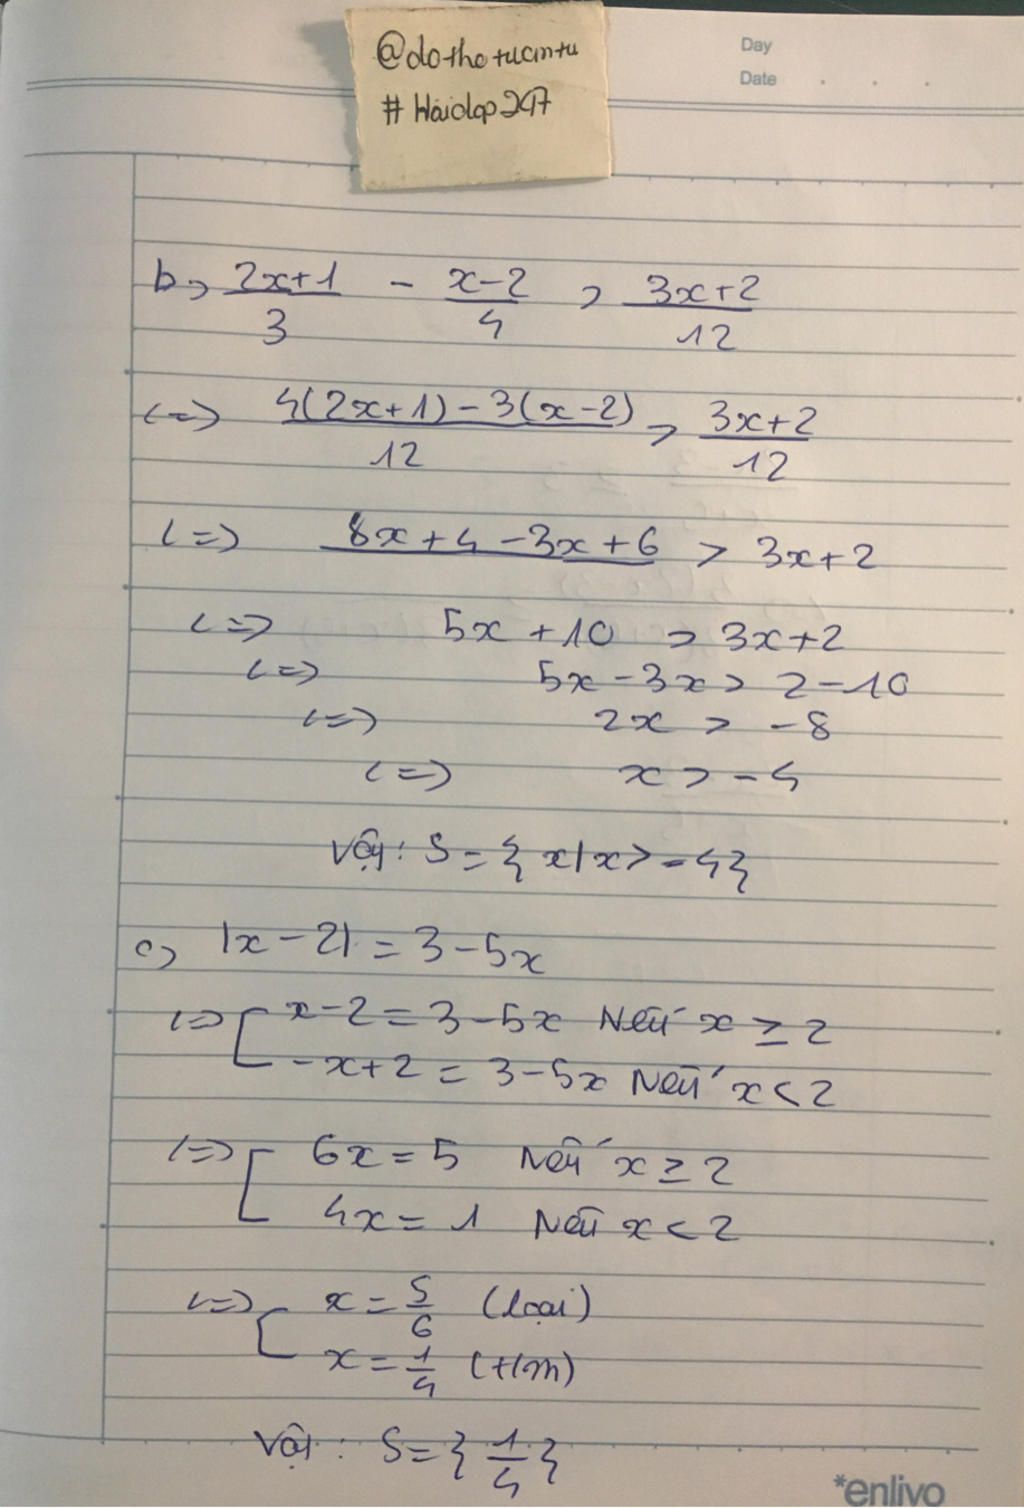 @dothetucmtu
# Hoidap247
Day
Date . . .
b, 2x+1/3 - x-2/4 > 3x+2/12
<=> 4(2x+1)-3(x-2)/12 > 3x+2/12
<=> 8x+4-3x+6 > 3x+2
<=> 5x+10 > 3x+2
<=> 5x-3x > 2-10
<=> 2x > -8
<=> x > -4
Vậy: S={x|x>-4}
c, |x-2| = 3-5x
<=> [ x-2 = 3-5x Nếu x ≥ 2
-x+2 = 3-5x Nếu x < 2
<=> [ 6x = 5 Nếu x ≥ 2
4x = 1 Nếu x < 2
<=> [ x = 5/6 (loại)
x = 1/4 (t/m)
Vậy: S={1/4}
*enlivo